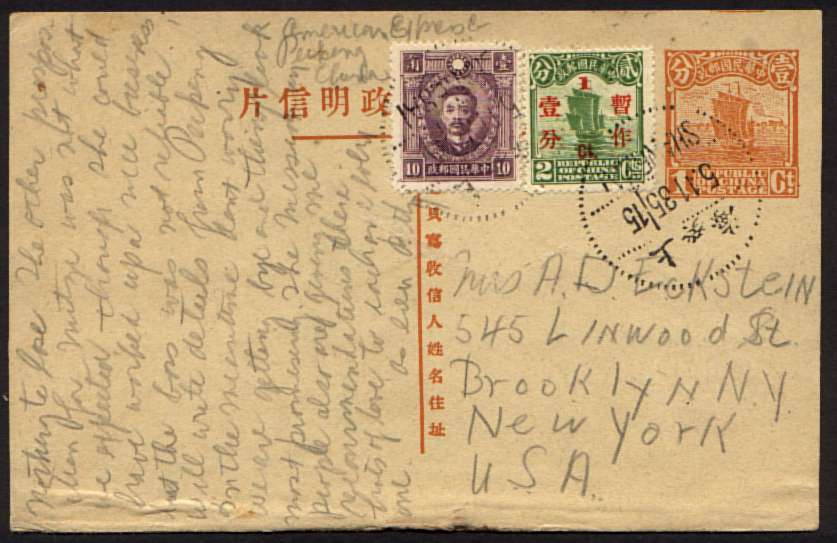 American Express
Peiping
China
片信明政
分 政郵國民華中 壹
REPUBLIC
OF CHINA
1 Ct
壹
10 中華民國郵政 10
分 政郵國民華中 貳
1
暫作
壹分
Ct
REPUBLIC
OF CHINA
POSTAGE
2 Cts
SHANGHAI
5.11.35/15
上海
寫收信人姓名住址
Mrs A. D. Eckstein
545 Linwood St.
Brooklyn N Y
New York
U.S.A.
Nothing to lose. The other
then for Mitzie was not what
we expected though she could
have worked up a nice business
but the boss was not reliable.
will write details from Peiping
in the meantime dont worry
we are getting bye and things look
most promising. The Mission
people also are giving me
recommendations there
lots of love to each
one. as ever